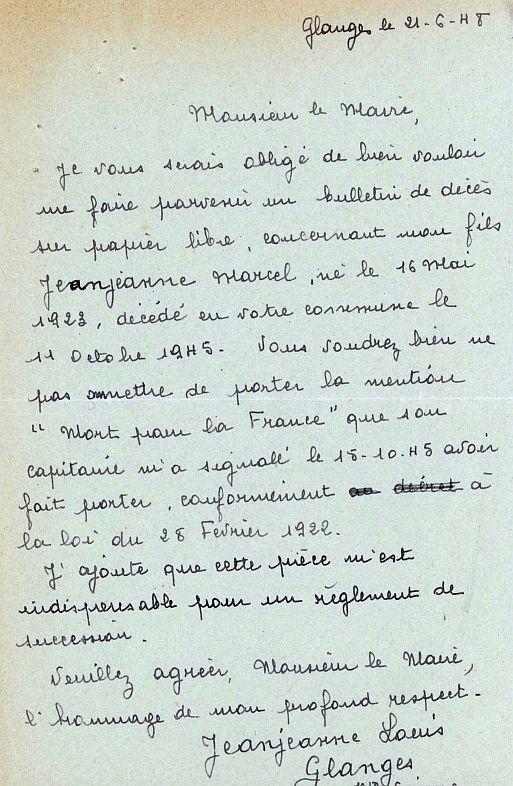 Glanges le 21-6-48
Monsieur le Maire,
Je vous serais obligé de bien vouloir
me faire parvenir un bulletin de décès
sur papier libre, concernant mon fils
Jeanjeanne Marcel, né le 16 Mai
1923, décédé en votre commune le
11 Octobre 1945. Vous voudrez bien ne
pas omettre de porter la mention
"Mort pour la France" que son
capitaine m'a signalé le 15-10.45 avoir
fait porter, conformément au décret à
la loi du 28 Février 1922.
J'ajoute que cette pièce m'est
indispensable pour un règlement de
succession.
Veuillez agréer, Monsieur le Maire,
l'hommage de mon profond respect.
Jeanjeanne Louis
Glanges